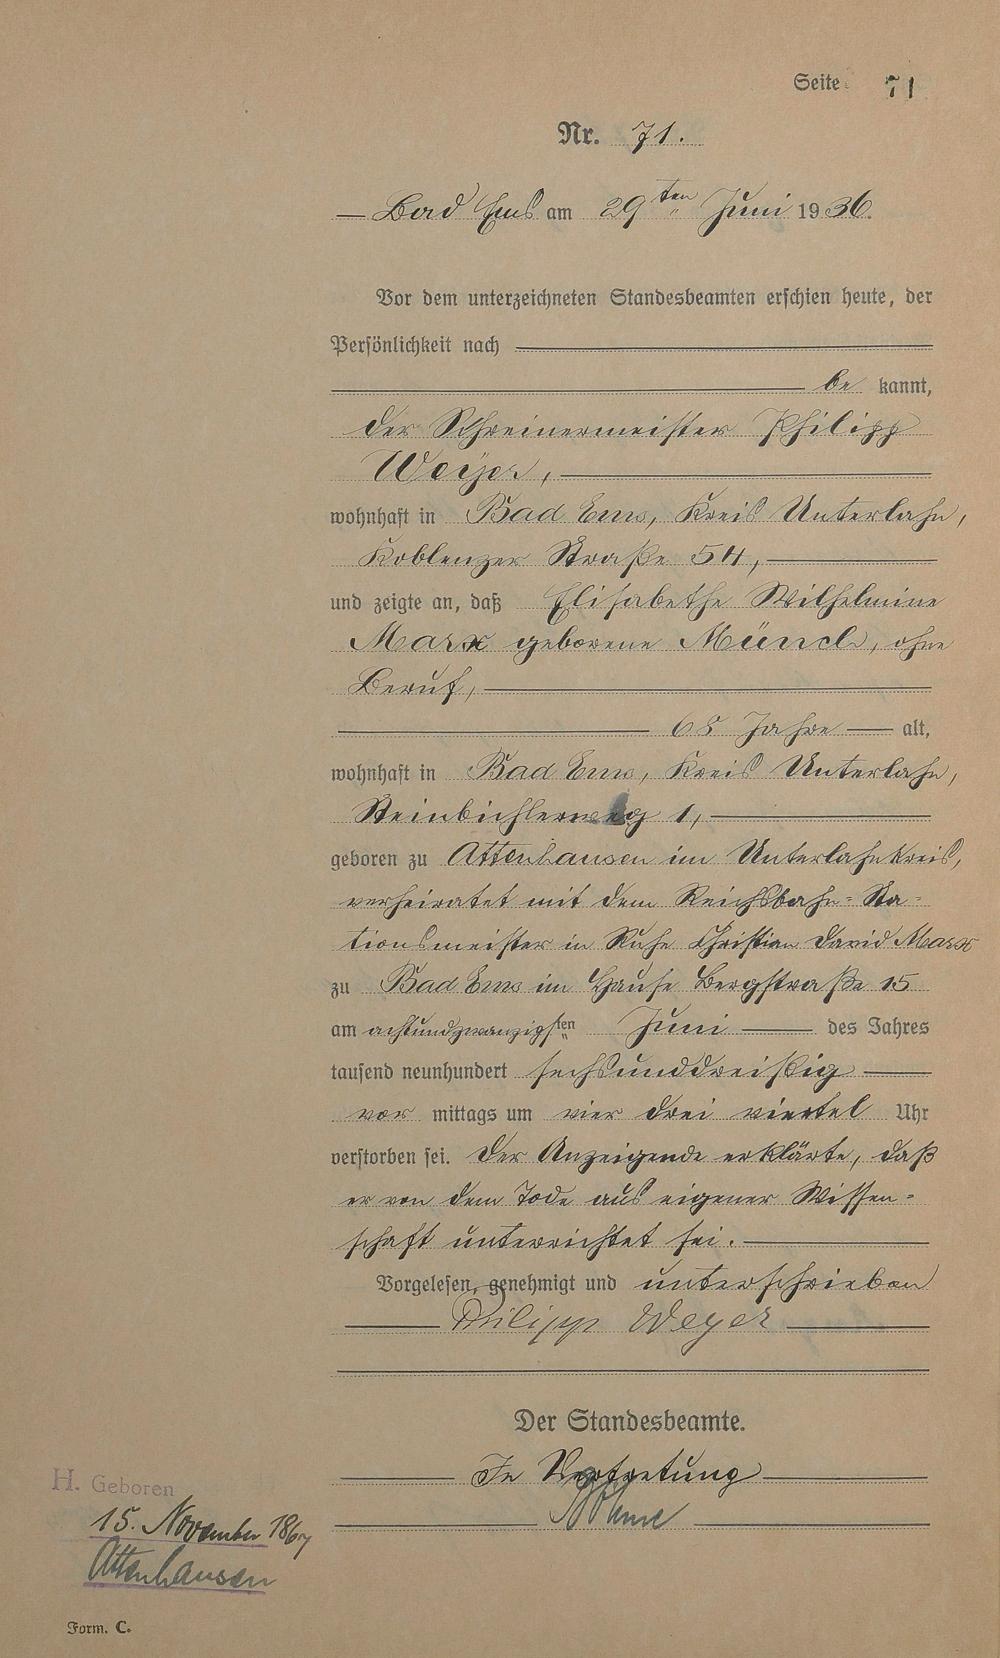 Seite 71
Nr. 71.
Bad Ems am 29ten Juni 1936.
Vor dem unterzeichneten Standesbeamten erschien heute, der
Persönlichkeit nach
be kannt,
der Schreinermeister Philipp
Weyer,
wohnhaft in Bad Ems, Kreis Unterlahn,
Koblenzer Straße 54,
und zeigte an, daß Elisabethe Wilhelmine
Marx geborene Münch, ohne
Beruf,
68 Jahre alt,
wohnhaft in Bad Ems, Kreis Unterlahn,
Steinbichlerweg 1,
geboren zu Attenhausen im Unterlahnkreis,
verheiratet mit dem Reichsbahn-Sta-
tionsmeister in Ruhe Christian David Marx
zu Bad Ems im Hause Bergstraße 15
am achtundzwanzigsten Juni des Jahres
tausend neunhundert sechsunddreißig
vor mittags um vier drei viertel Uhr
verstorben sei. Der Anzeigende erklärte, daß
er von dem Tode aus eigener Wissen-
schaft unterrichtet sei.
Vorgelesen, genehmigt und unterschrieben
Philipp Weyer
Der Standesbeamte.
In Vertretung
H. Geboren
15. November 1867
Attenhausen
Form. C.